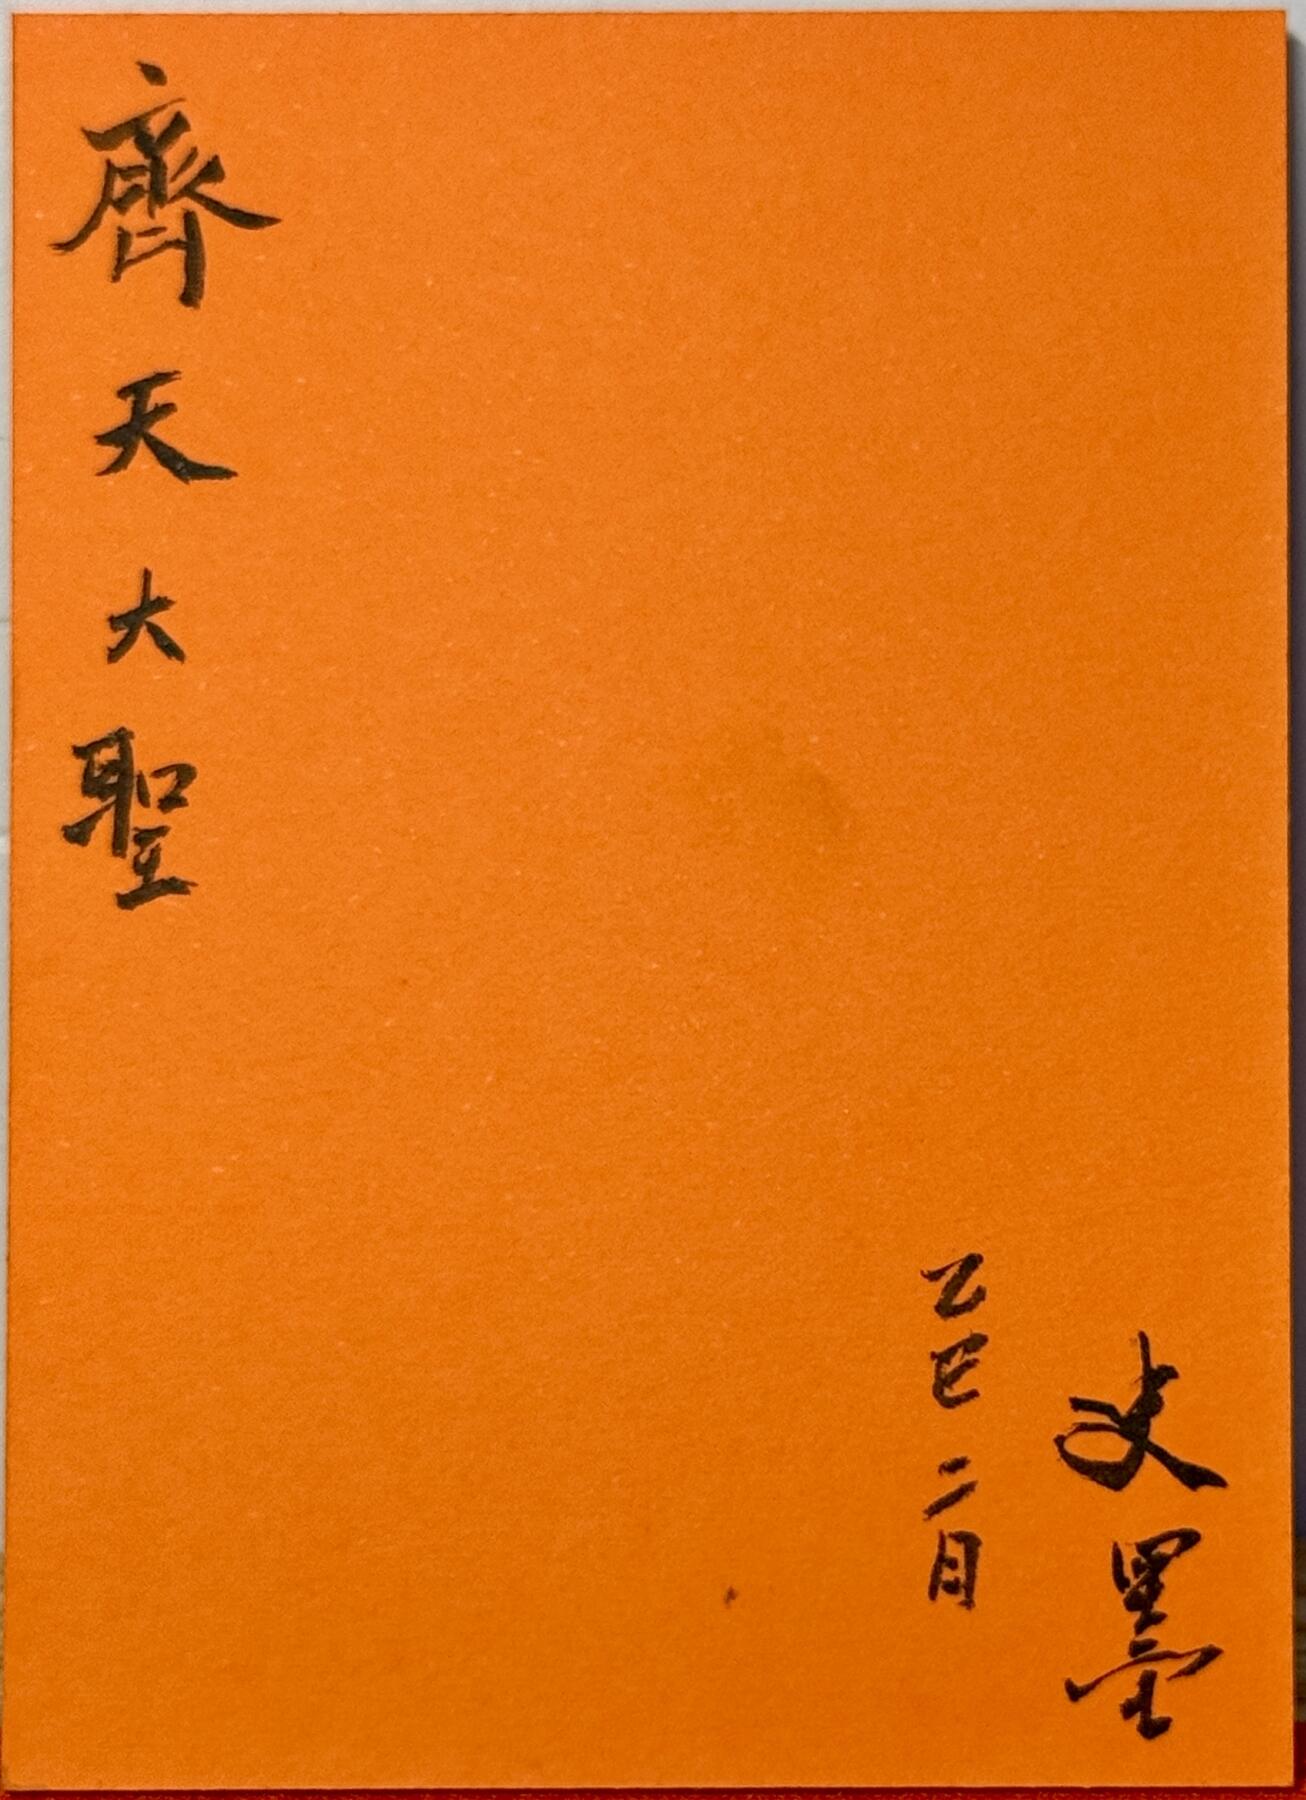 齊天大聖
史墨
乙巳二月